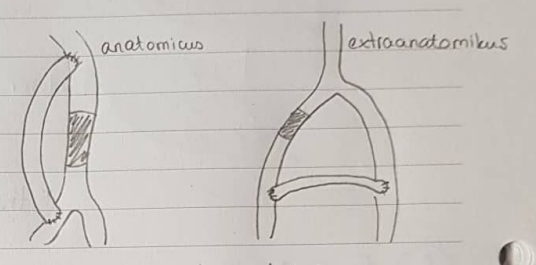 anatomicus
extraanatomikus